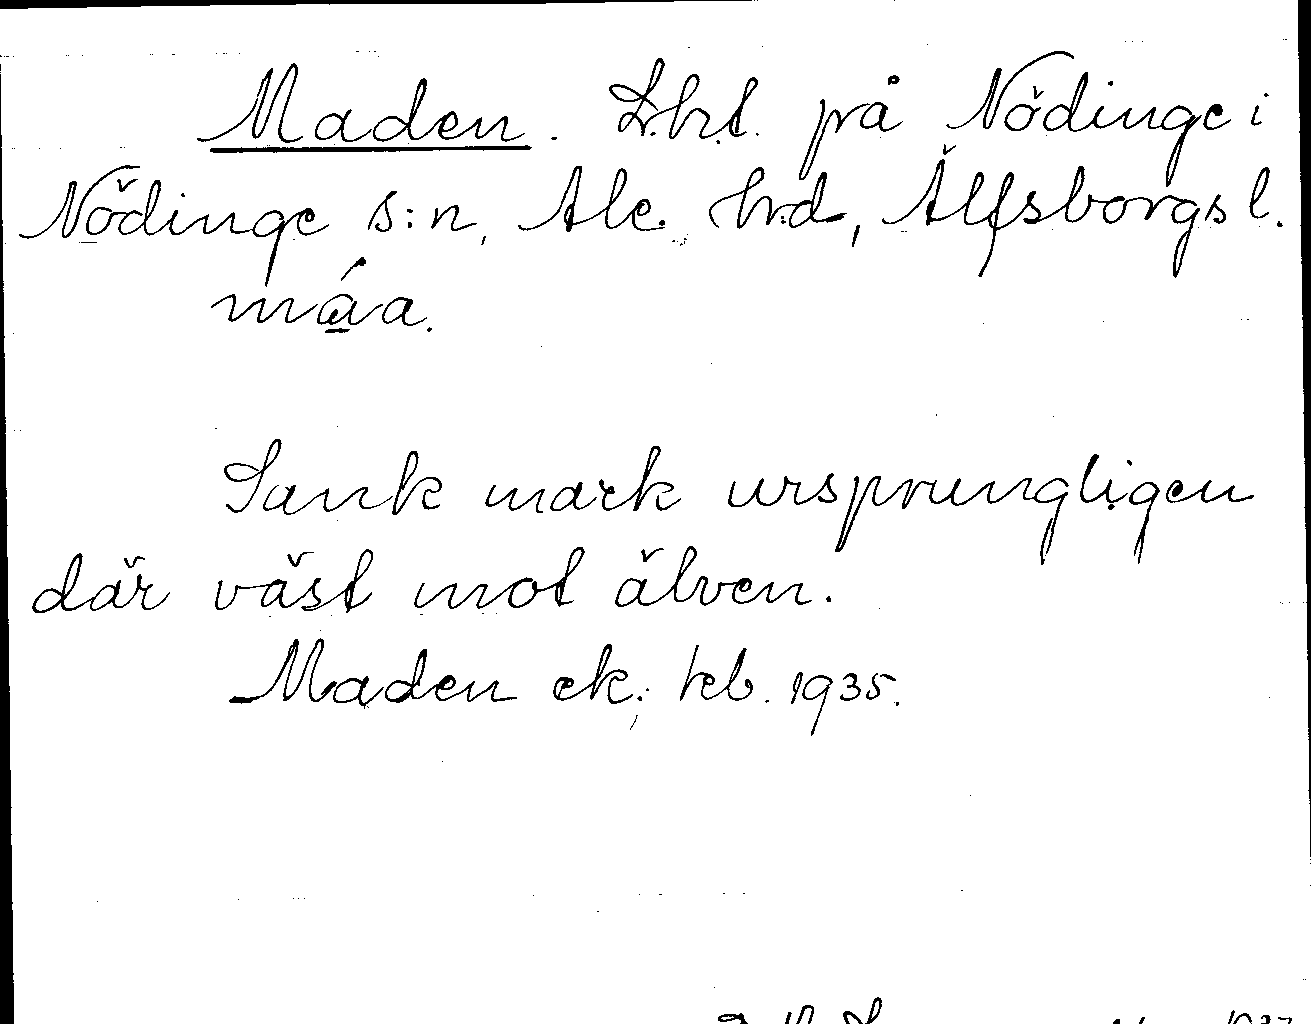 Maden. Lht. på Nödinge i
Nödinge s:n, Ale hrd, Älfsborgs l.
máa.
Sank mark ursprungligen
där väst mot älven.
Maden ek. keb. 1935.